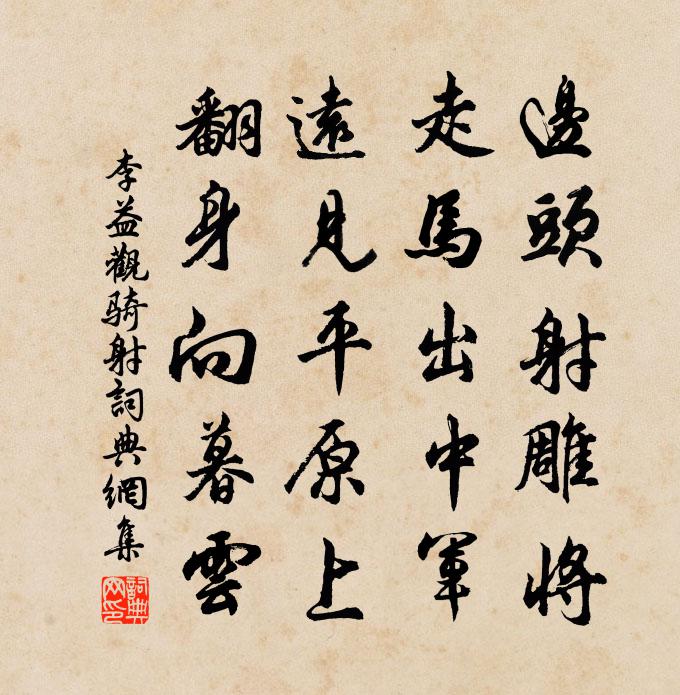 邊頭射雕將
走馬出中軍
遠見平原上
翻身向暮雲
李益觀騎射詞典網集
詞典網印